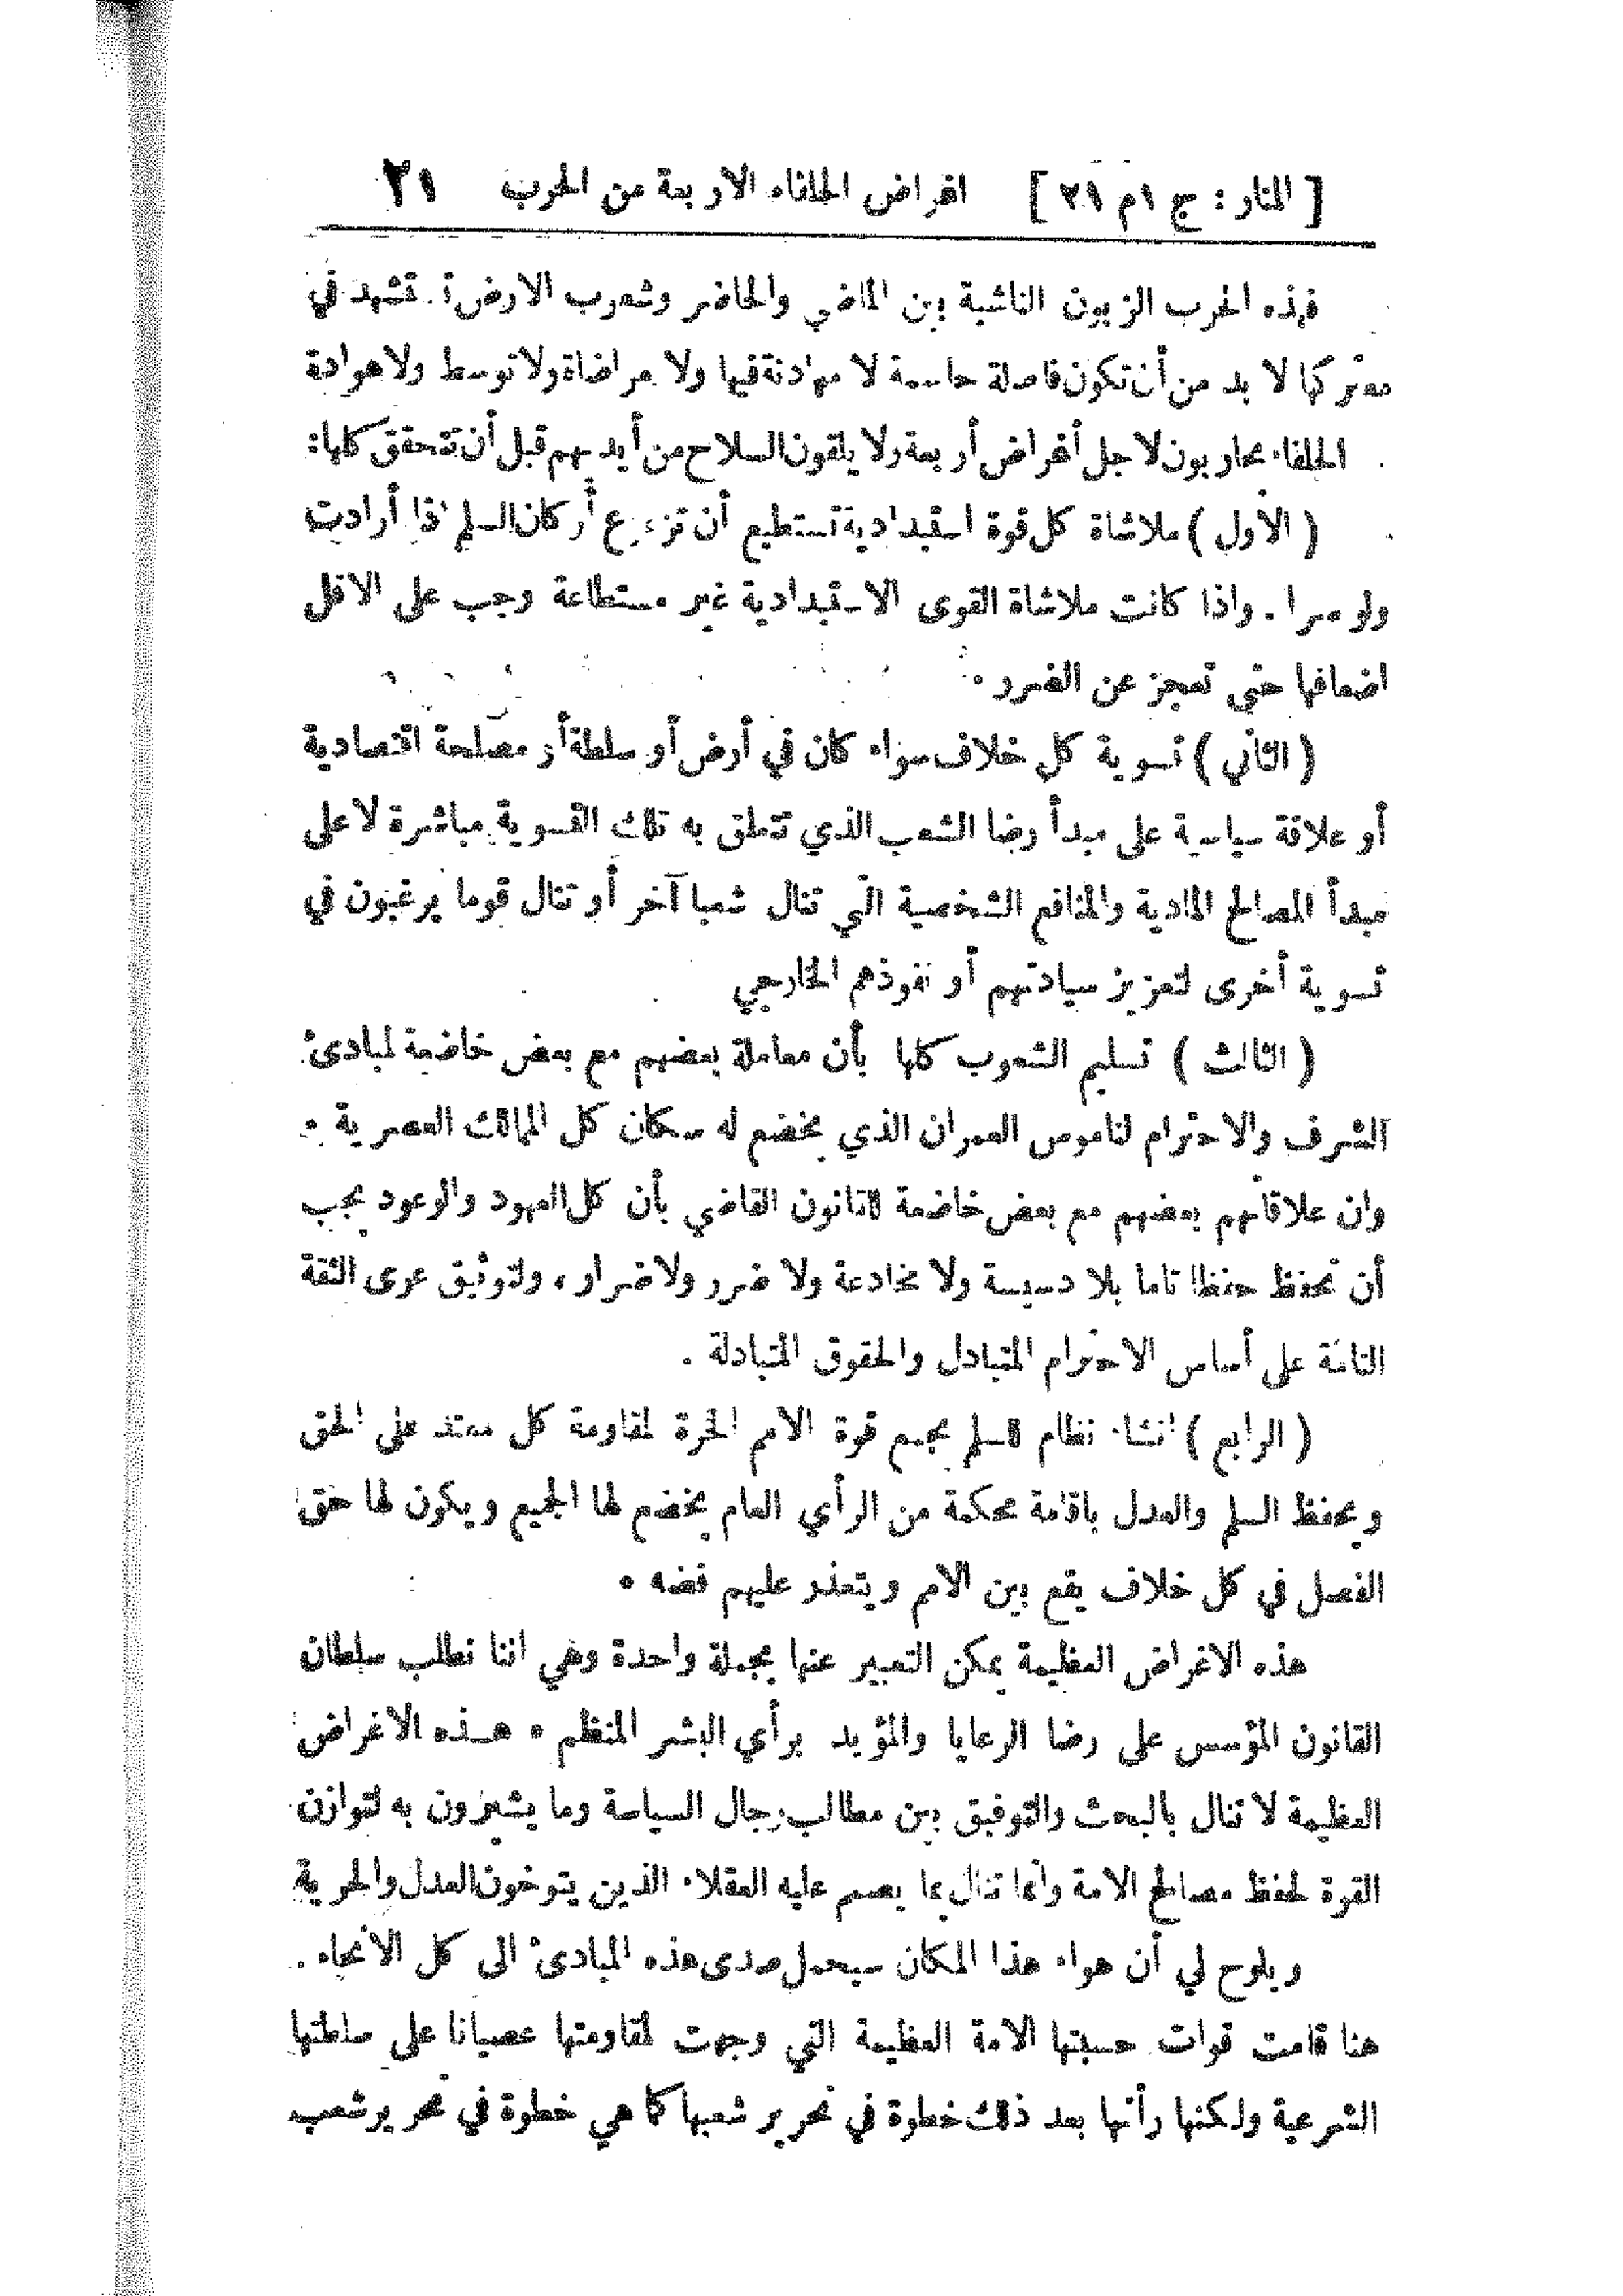 [ المنار : ج ١ م ٢١ ] اغراض الحلفاء الاربعة من الحرب ٢١
فهذه الحرب الزبون الناشبة بين الماضي والحاضر وشعوب الارض تشهد في
معتركها لا بد من أن تكون فاصلة حاسمة لا مهادنة فيها ولا مراضاة ولا توسط ولا هوادة
الحلفاء يحاربون لاجل أغراض أربعة ولا يلقون السلاح من أيديهم قبل أن تتحقق كلها :
( الأول ) ملاشاة كل قوة استبدادية تستطيع أن تزعزع أركان السلم اذا أرادت
ولو سرا . واذا كانت ملاشاة القوى الاستبدادية غير مستطاعة وجب على الاقل
اضعافها حتى تعجز عن الضرر .
( الثاني ) تسوية كل خلاف سواء كان في أرض أو سلطة أو مصلحة اقتصادية
أو علاقة سياسية على مبدأ رضا الشعب الذي تتعلق به تلك التسوية مباشرة لا على
مبدأ المصالح المادية والمنافع الشخصية التي تنال شعبا آخر أو تنال قوما يرغبون في
تسوية أخرى لتعزيز سيادتهم أو نفوذهم الخارجي
( الثالث ) تسليم الشعوب كلها بأن معاملة بعضهم مع بعض خاضعة لمبادئ
الشرف والاحترام لناموس العمران الذي يخضع له سكان كل الممالك العصرية .
وان علاقاتهم بعضهم مع بعض خاضعة للقانون القاضي بأن كل العهود والوعود يجب
أن تحفظ حفظا تاما بلا دسيسة ولا مخادعة ولا ضرر ولا ضرار ، ولتوثيق عرى الثقة
التامة على أساس الاحترام المتبادل والحقوق المتبادلة .
( الرابع ) انشاء نظام للسلم يجمع قوة الامم الحرة لمقاومة كل معتد على الحق
ويحفظ السلم والعدل باقامة محكمة من الرأي العام يخضع لها الجميع ويكون لها حق
الفصل في كل خلاف يقع بين الامم ويتعذر عليهم فضه .
هذه الاغراض العظيمة يمكن التعبير عنها بجملة واحدة وهي اننا نطلب سلطان
القانون المؤسس على رضا الرعايا والمؤيد برأي البشر المنظم . هــذه الاغراض
العظيمة لا تنال بالبحث والتوفيق بين مطالب رجال السياسة وما يشيرون به لتوازن
القوة لحفظ مصالح الامة وانما تنال بما يصمم عليه العقلاء الذين يتوخون العدل والحرية
ويلوح لي أن هواء هذا المكان سيحمل صدى هذه المبادئ الى كل الانحاء .
هنا قامت قوات حسبتها الامة العظيمة التي وجهت لمقاومتها عصيانا على سلطتها
الشرعية ولكنها رأتها بعد ذلك خطوة في تحرير شعبها كما هي خطوة في تحرير شعب